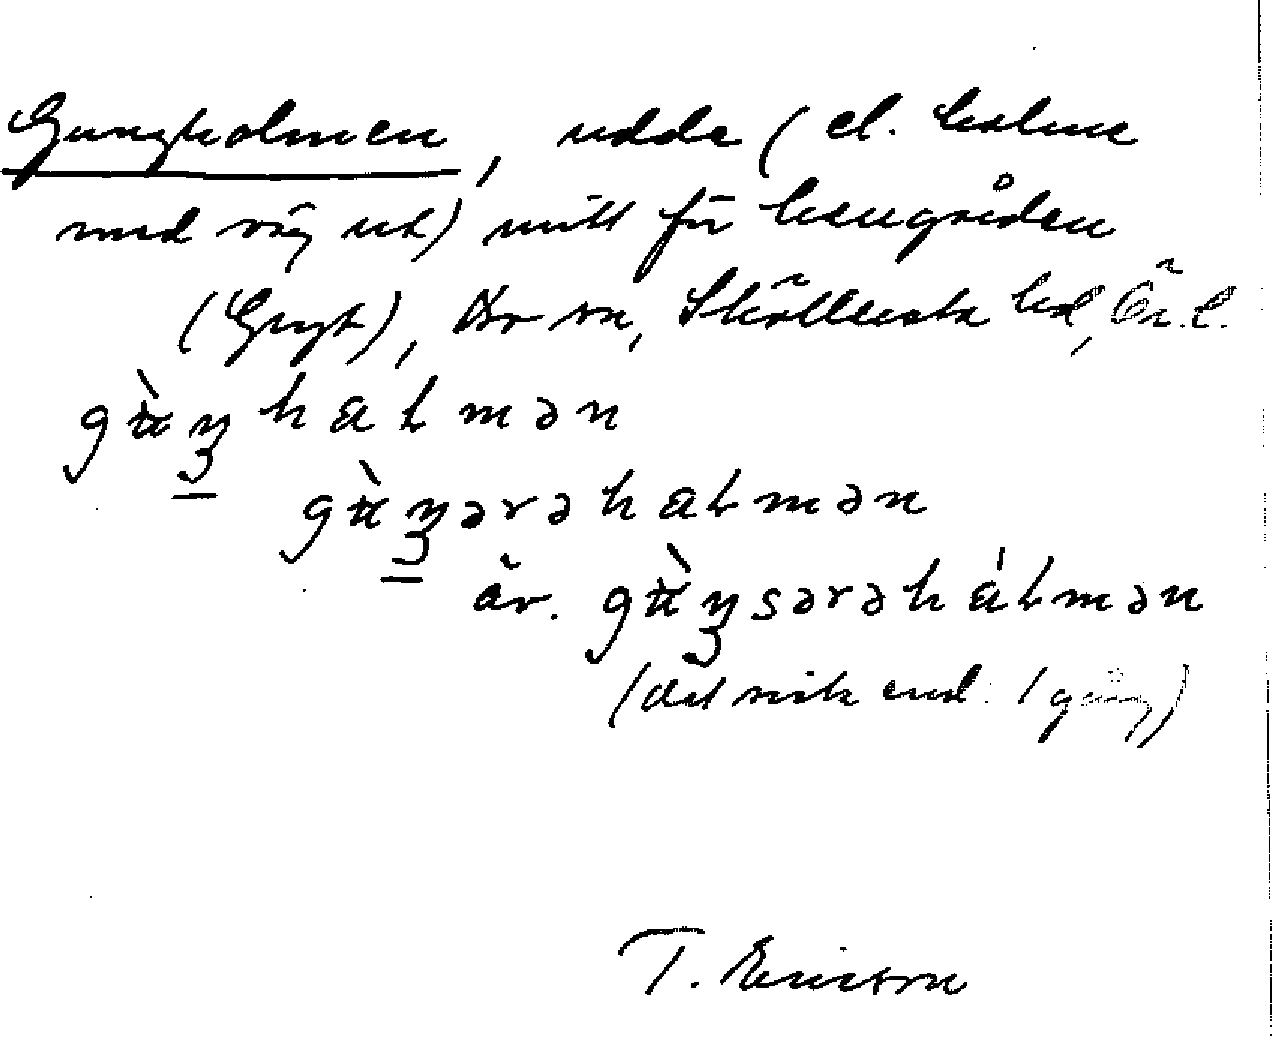 Gungholmen, udde (el. holme
med väg ut) mitt för herrgården
(Gryt), Skölleersta hd, Ör. l.
gùŋhɑlmən
gùŋərəhɑlmən
äv. gùŋsərəhɑ́lmən
(det sista end. 1 gång)
T. Ericson